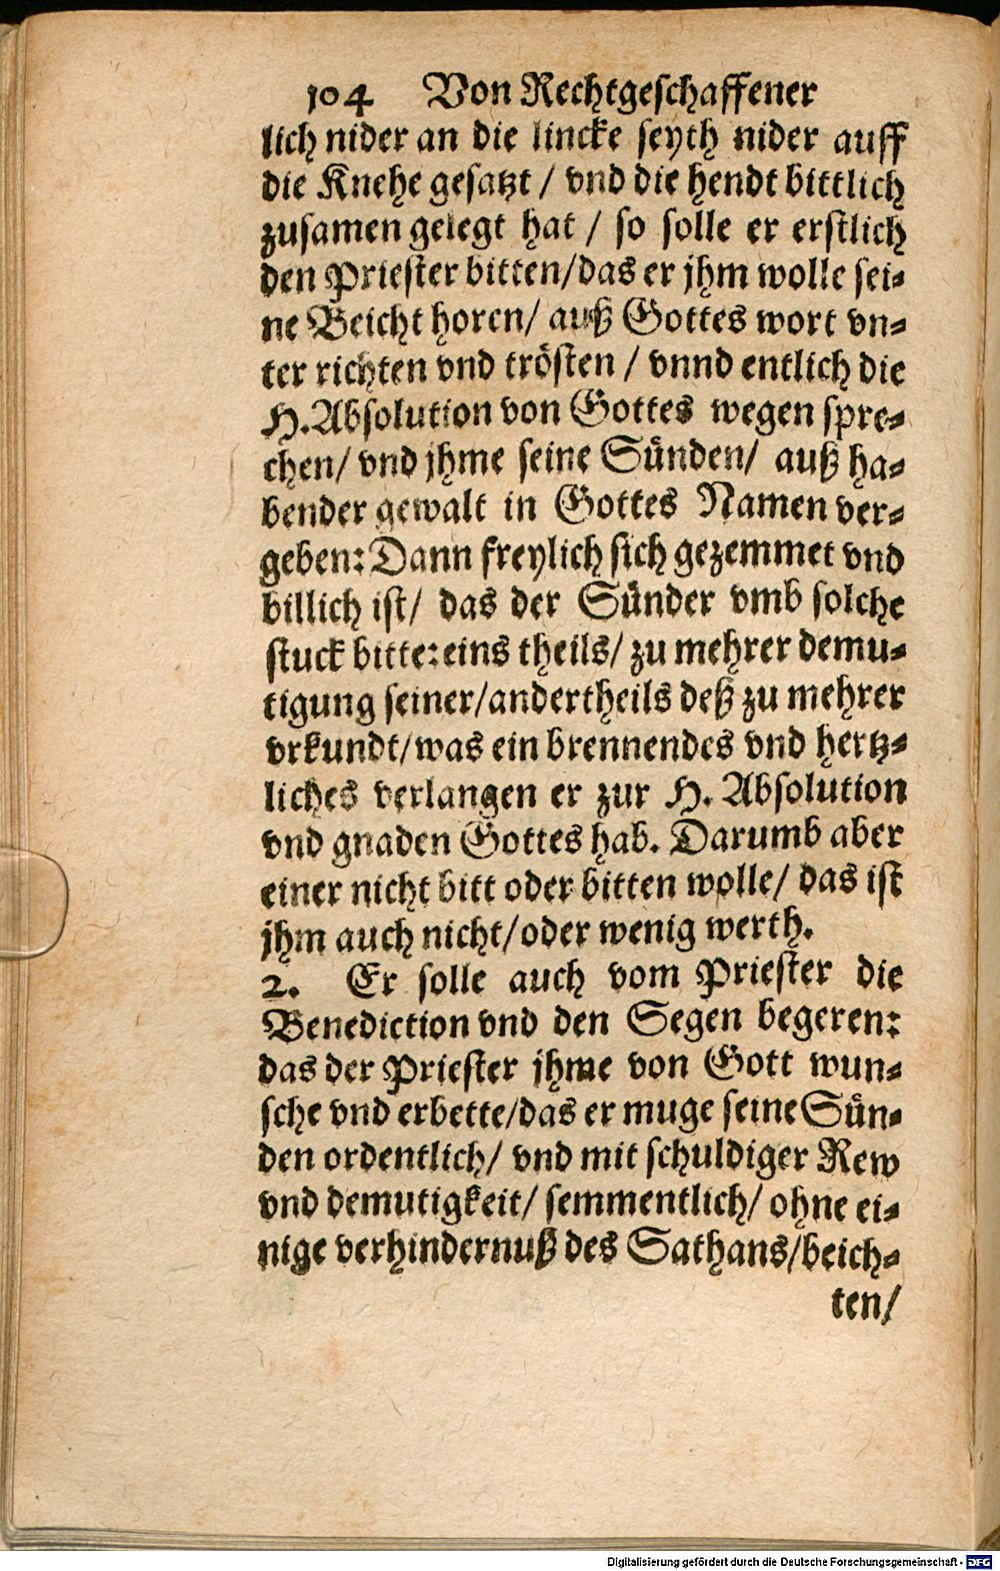 104 Von Rechtgeschaffener
lich nider an die lincke seyth nider auff
die Knehe gesatzt / vnd die hendt bittlich
zusamen gelegt hat / so solle er erstlich
den Priester bitten/das er jhm wolle sei-
ne Beicht horen/ auß Gottes wort vn-
ter richten vnd trösten / vnnd entlich die
H. Absolution von Gottes wegen spre-
chen/ vnd jhme seine Sünden/ auß ha-
bender gewalt in Gottes Namen ver-
geben: Dann freylich sich gezemmet vnd
billich ist/ das der Sünder vmb solche
stuck bitte: eins theils/ zu mehrer demu-
tigung seiner/andertheils deß zu mehrer
vrkundt/was ein brennendes vnd hertz-
liches verlangen er zur H. Absolution
vnd gnaden Gottes hab. Darumb aber
einer nicht bitt oder bitten wolle/ das ist
jhm auch nicht/oder wenig werth.
2. Er solle auch vom Priester die
Benediction vnd den Segen begeren:
das der Priester jhme von Gott wun-
sche vnd erbette/das er muge seine Sün-
den ordentlich/ vnd mit schuldiger Rew
vnd demutigkeit/ semmentlich/ ohne ei-
nige verhindernuß des Sathans/beich-
ten/
Digitalisierung gefördert durch die Deutsche Forschungsgemeinschaft - DFG